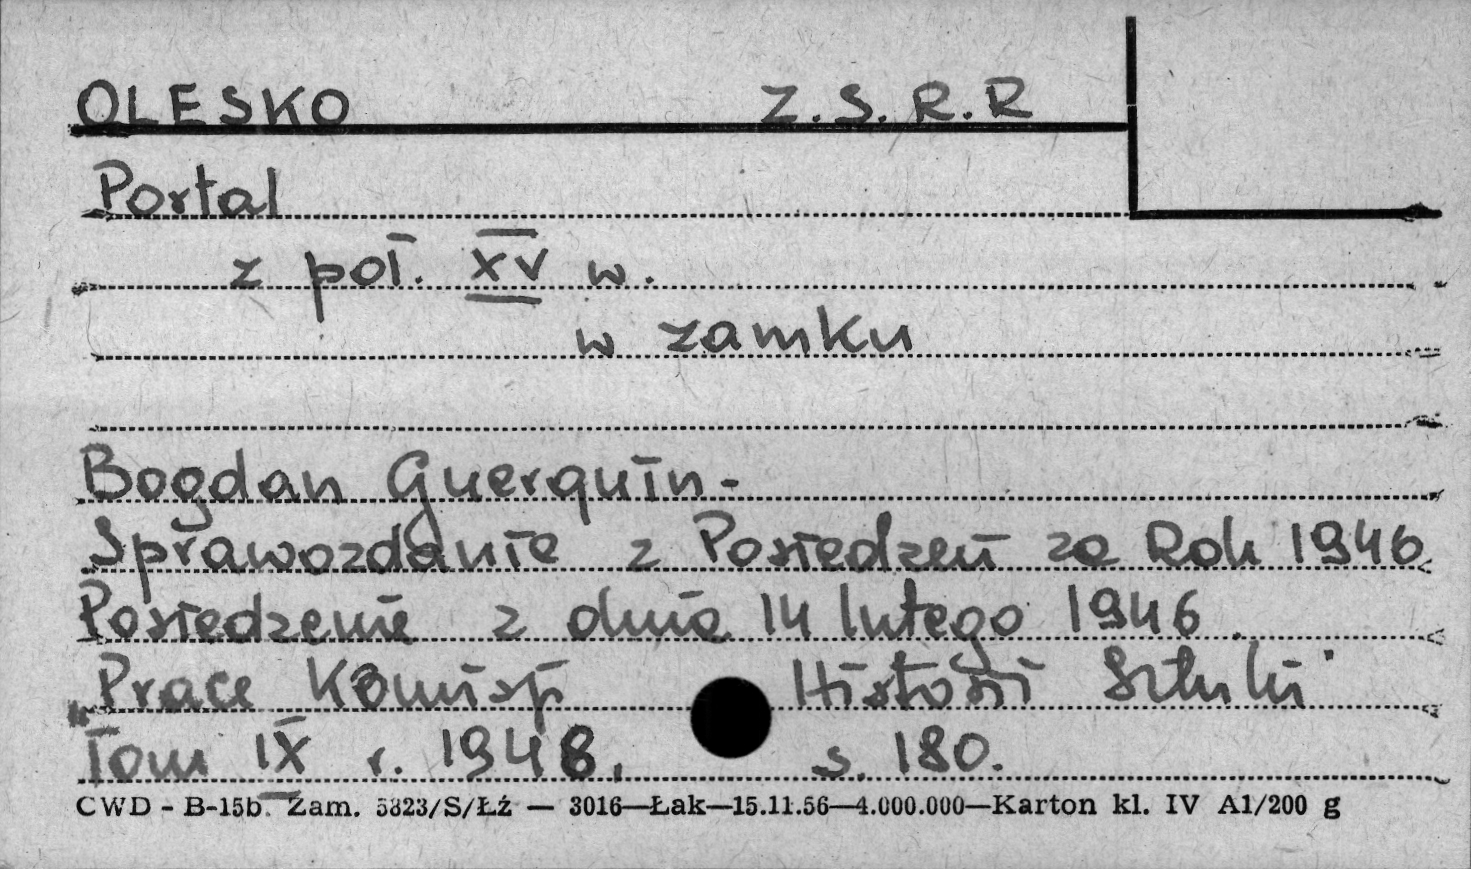 OLESKO Z.S.R.R
Portal
z poł. XV w.
w zamku
Bogdan Guerquin-
Sprawozdanie z Posiedzeń za Rok 1946
Posiedzenie z dnia 14 lutego 1946.
"Prace Komisji Historii Sztuki"
Tom IX r. 1948. s. 180.
CWD - B-15b. Zam. 5323/S/Łź — 3016—Łak—15.11.56—4.000.000—Karton kl. IV A1/200 g